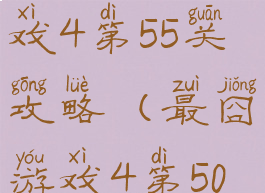 xì dì guān
戏4第55关
gōng lüè zuì jiǒng
攻略(最囧
yóu xì dì
游戏4第50